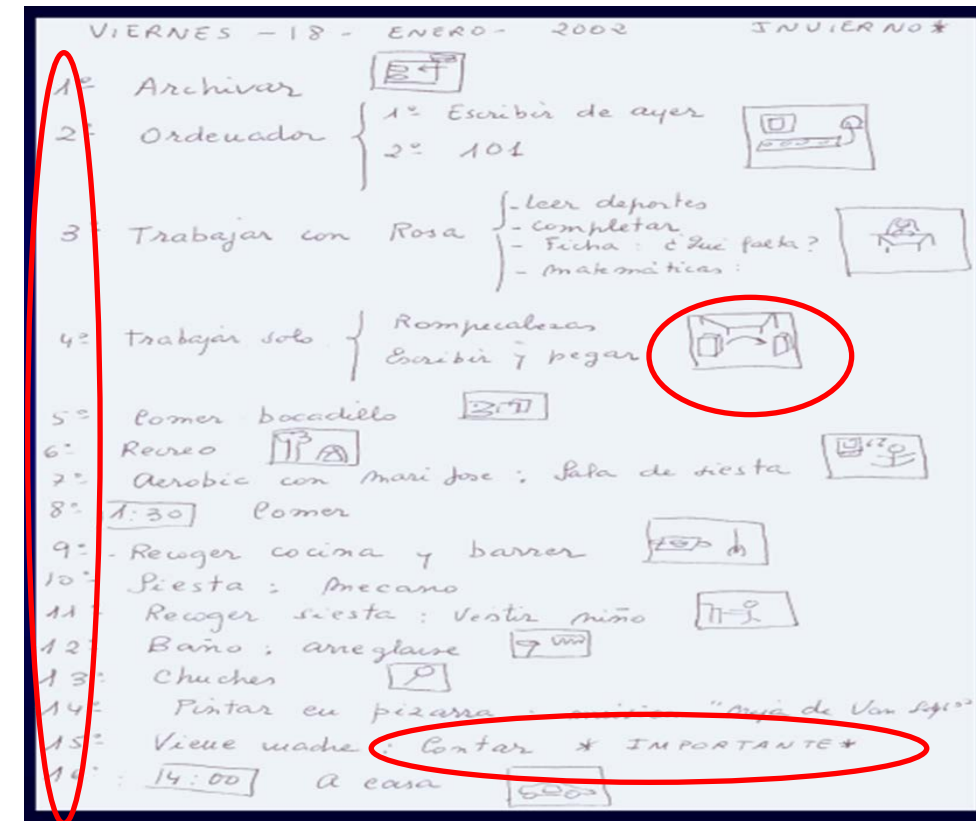 VIERNES - 18 - ENERO - 2002 INVIERNO*
1º Archivar
2º Ordenador 1º Escribir de ayer
2º 101
3º Trabajar con Rosa - leer deportes
- completar
- Ficha : ¿Qué falta?
- matemáticas :
4º Trabajar solo Rompecabezas
Escribir y pegar
5º Comer bocadillo
6º Recreo
7º Aerobic con Mari Jose : Sala de siesta
8º 1:30 Comer
9º - Recoger cocina y barrer
10º Siesta : Mecano
11º Recoger siesta : Vestir niño
12º Baño : arreglarse
13º Chuches
14º Pintar en pizarra : "de Van
15º Viene madre : Contar * IMPORTANTE*
16º : 14:00 A casa